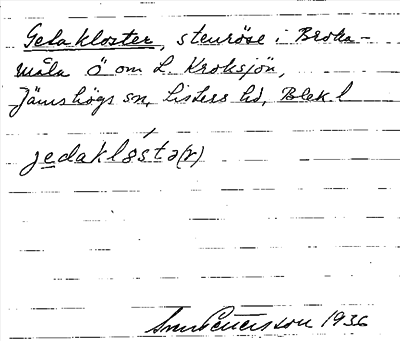 Geta kloster, stenröse i Broka-
måla Ö om L. Kroksjön,
Jämshögs sn, Listers hd, Blek l
jedaklósta(r)
1936